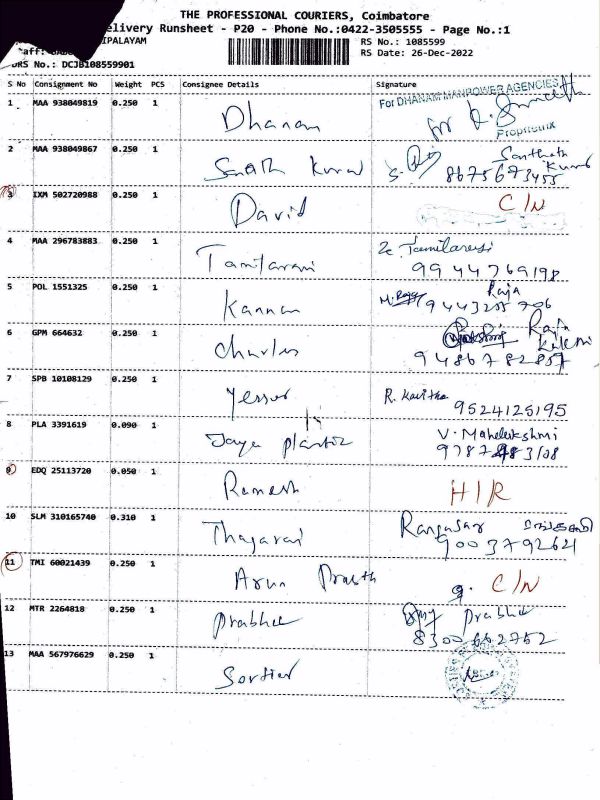 THE PROFESSIONAL COURIERS, Coimbatore
elivery Runsheet - P20 - Phone No.:0422-3505555 - Page No.:1
IPALAYAM RS No.: 1085599
aff: RS Date: 26-Dec-2022
DRS No.: DCJB108559901
S No Consignment No Weight PCS Consignee Details Signature
1 MAA 938049819 0.250 1 Dhanam For DHANAM MANPOWER AGENCIES
for Proprietrix
2 MAA 938049867 0.250 1 Kumar Santhosh Kumar
8675673455
3 IXM 502720988 0.250 1 David C/N
4 MAA 296783883 0.250 1 Tamilarasi Tamilarasi
9944769198
5 POL 1551325 0.250 1 Kannan M. Raja Raja
9443255706
6 GPM 664632 0.250 1 Charles Raja
9486782857
7 SPB 10108129 0.250 1 R. Kavitha
9524125195
8 PLA 3391619 0.090 1 Jaya Plastic V. Mahalakshmi
9 EDQ 25113720 0.050 1 Ramesh H/R
10 SLM 310165740 0.310 1 Thagarai
9003792621
11 TMI 60021439 0.250 1 Arun C/N
12 MTR 2264818 0.250 1 Prabhu Prabhu
8300662752
13 MAA 567976629 0.250 1